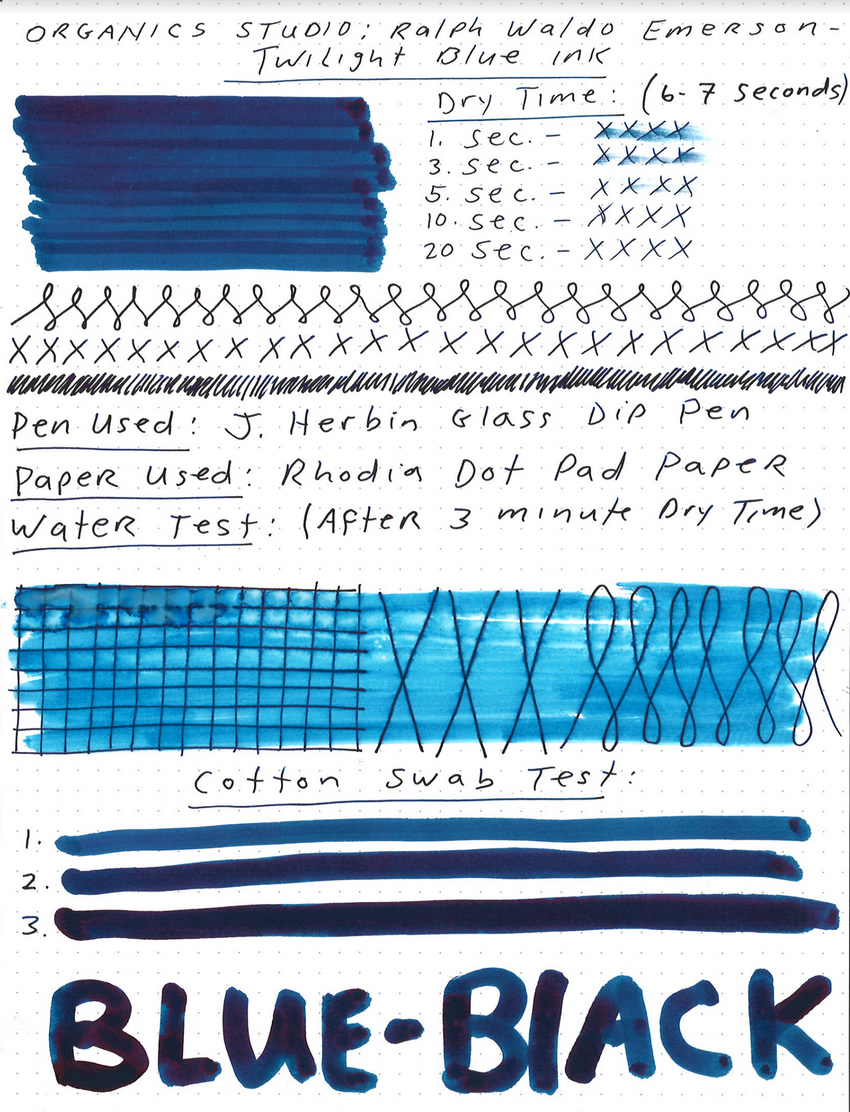 ORGANICS STUDIO: Ralph Waldo Emerson-
Twilight Blue ink
Dry Time: (6-7 seconds)
1. sec. - XXXX
3. sec. - XXXX
5. sec. - XXXX
10. sec. - XXXX
20 sec. - XXXX
XXXXXXXXXXXXXXXXXXXXXXXXX
Pen Used: J. Herbin Glass Dip Pen
Paper Used: Rhodia Dot Pad Paper
Water Test: (After 3 minute Dry Time)
XXX
Cotton Swab Test:
1.
2.
3.
BLUE-BlACK